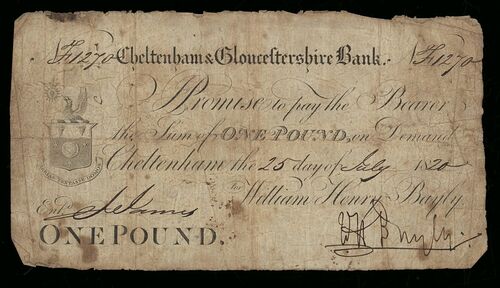 F1270 Cheltenham & Gloucestershire Bank. F1270
I Promise to pay the Bearer
the Sum of ONE POUND, on Demand
Cheltenham the 25 day of July 1820
For William Henry Bayly
Entd
ONE POUND.
WH Bayly